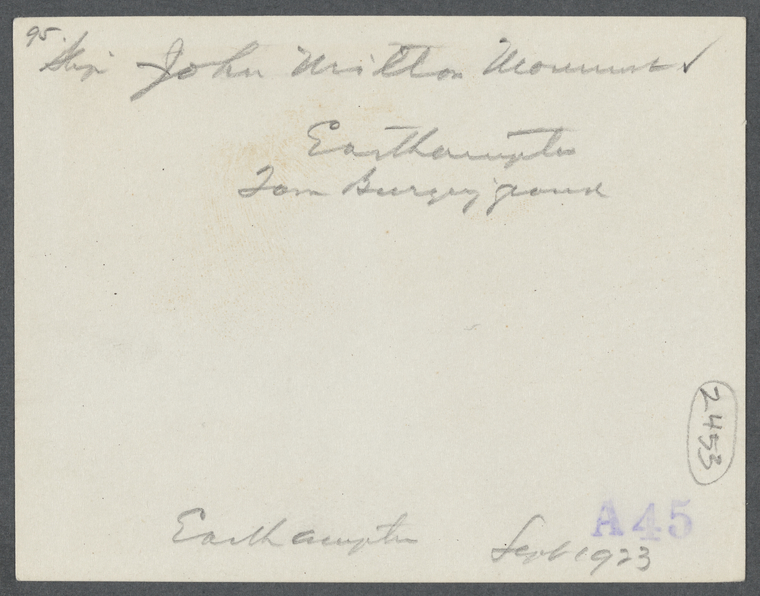 95.
Ship John Milton Monument ✓
Easthampton
Tom Burying ground
2453
A45
Easthampton Sept 1923